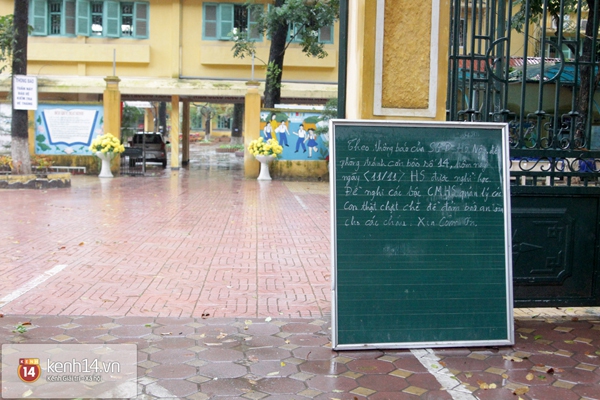 Theo thông báo của Sở GD HN Nghỉ
phòng tránh cơn bão số 14, hôm nay
ngày (11/11) HS được nghỉ học.
Đề nghị các bậc CMHS quản lý các
con thật chặt chẽ để đảm bảo an toàn
cho các cháu. Xin Cảm ơn
kenh14.vn
Kênh Giải trí - Xã hội
KENH
14